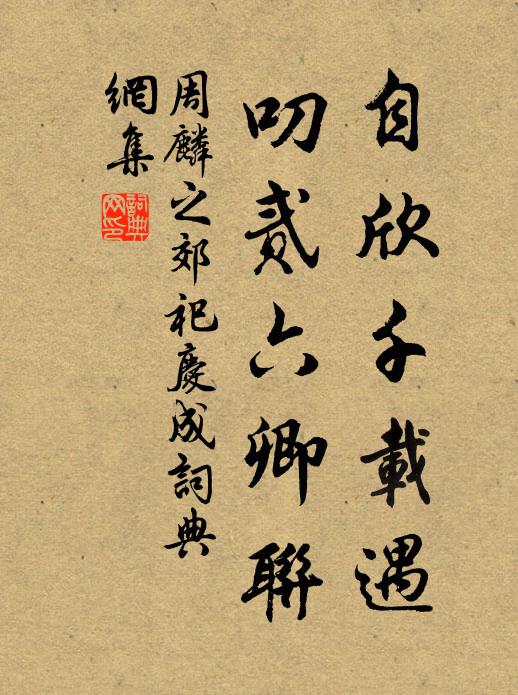 自欣千載遇
叨貳六卿聯
周麟之郊祀慶成詞典
網集
詞典
网印